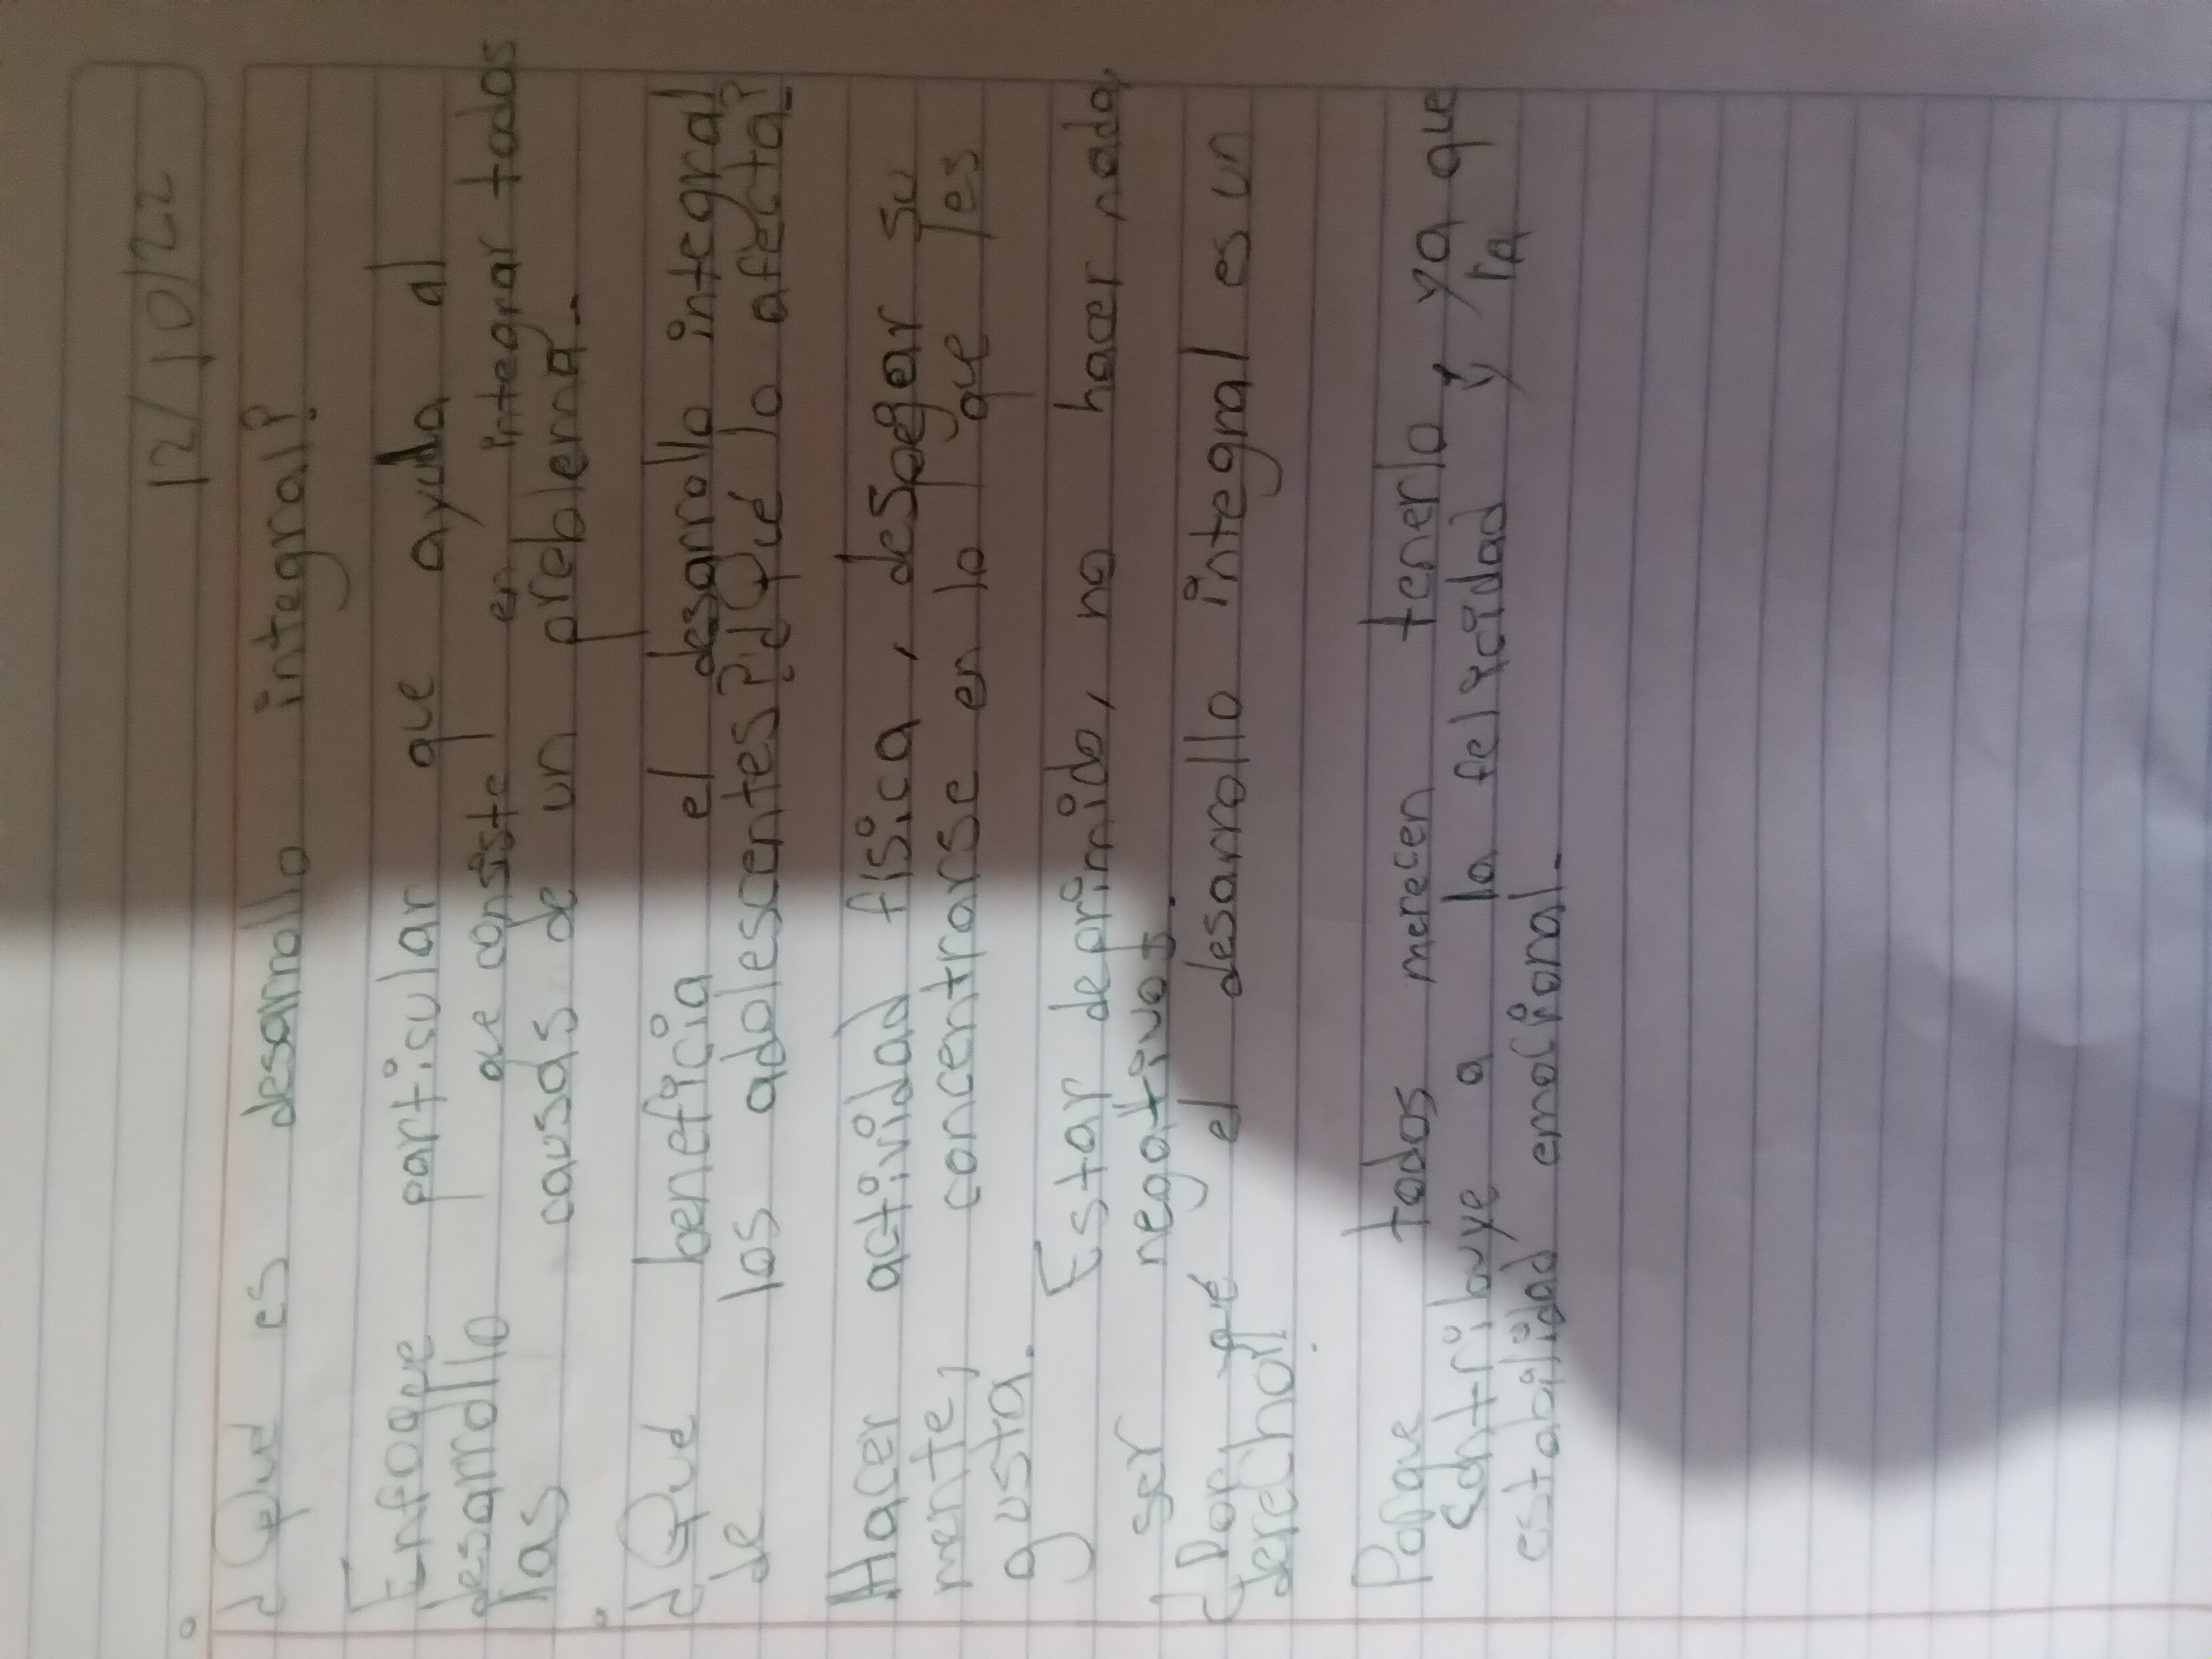 12/10/22
¿Qué es desarrollo integral?
Enfoque partisular que ayuda al
desarrollo que consiste en integrar todos
las causas de un preblema.
¿Qué beneficia el desarrollo integral
de los adolescentes? ¿Qué lo afecta?
Hacer actividad física, despegar su
mente, concentrarse en lo que les
gusta.
Estar deprimido, no hacer nada,
ser negativos.
¿Por qué el desarrollo integral es un
derecho?
Porque todos merecen tenerlo y ya que
contribuye a la felicidad y la
estabilidad emocional.